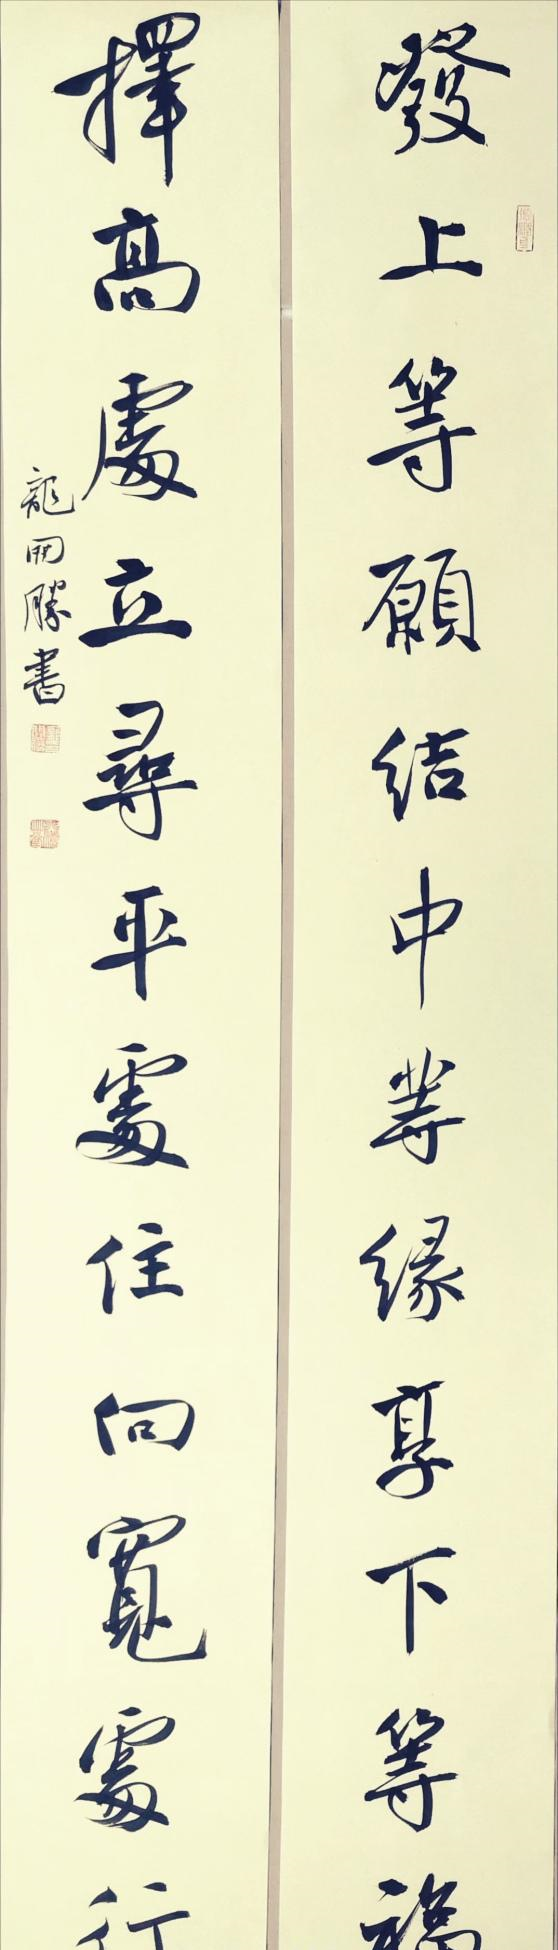 發上等願結中等緣享下等福
擇高處立尋平處住向寬處行
龍開勝書